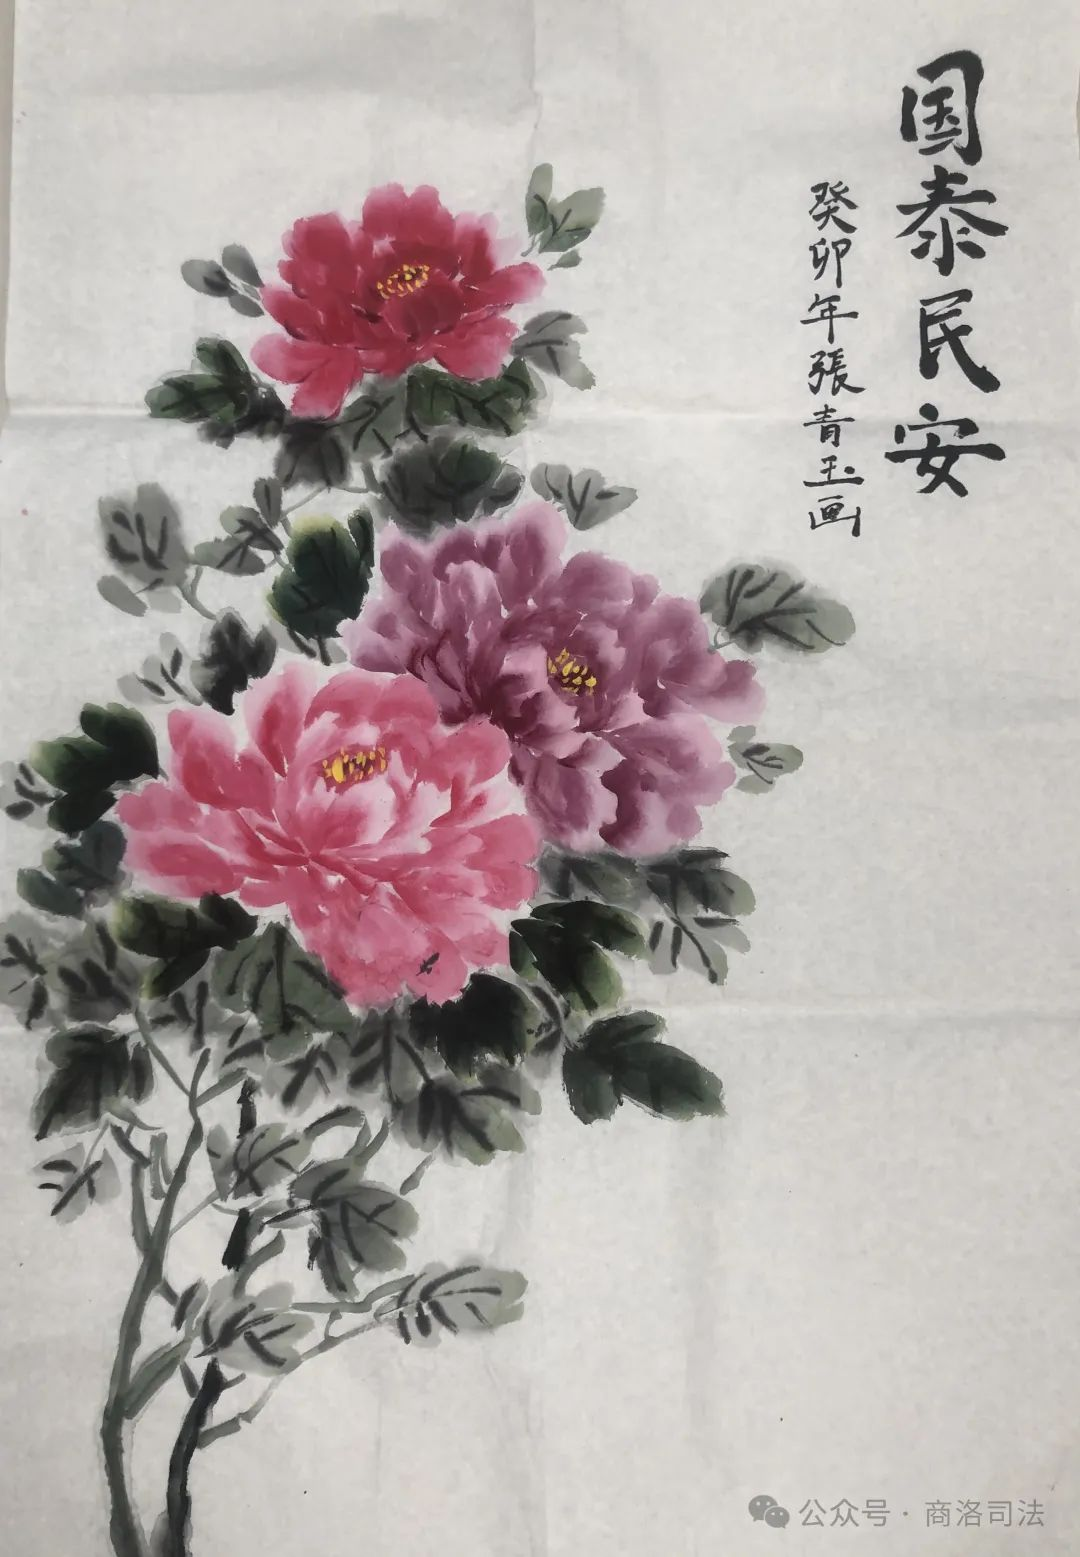 国泰民安
癸卯年張青玉画
公众号·商洛司法